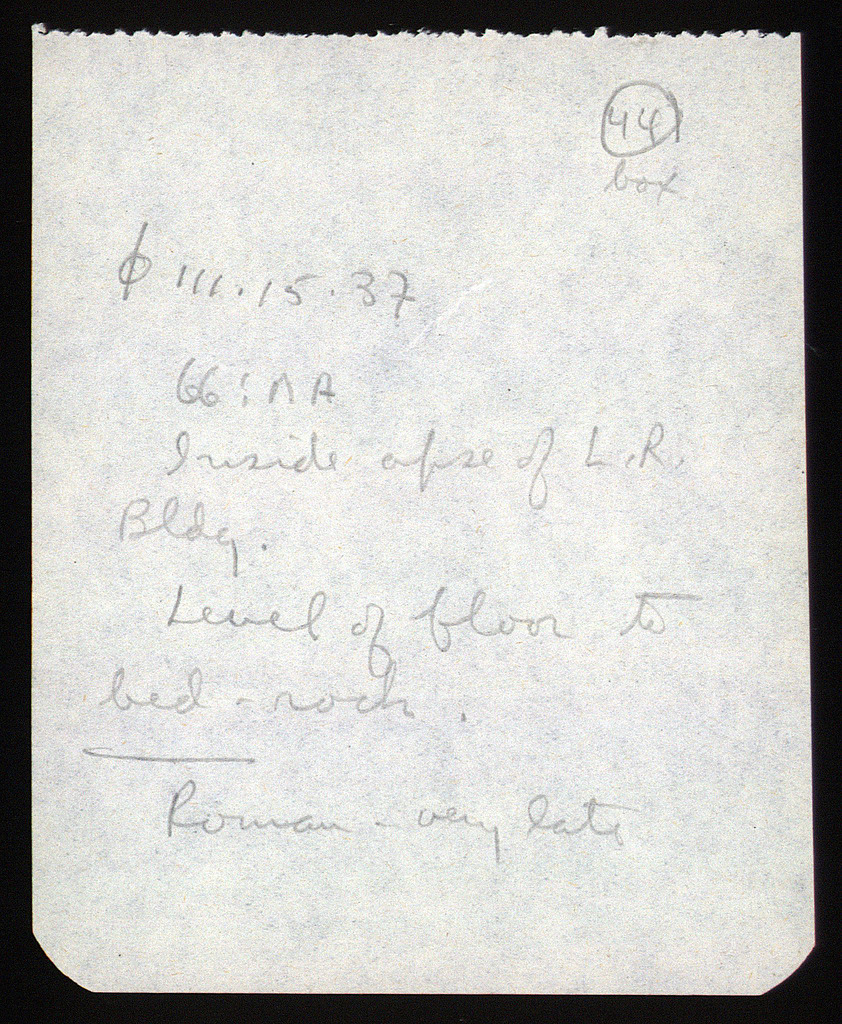 44
box
ϕ 111.15.37
66:ΛA
Inside apse of L.R.
Bldg.
Level of floor to
bed-rock.
Roman - very late